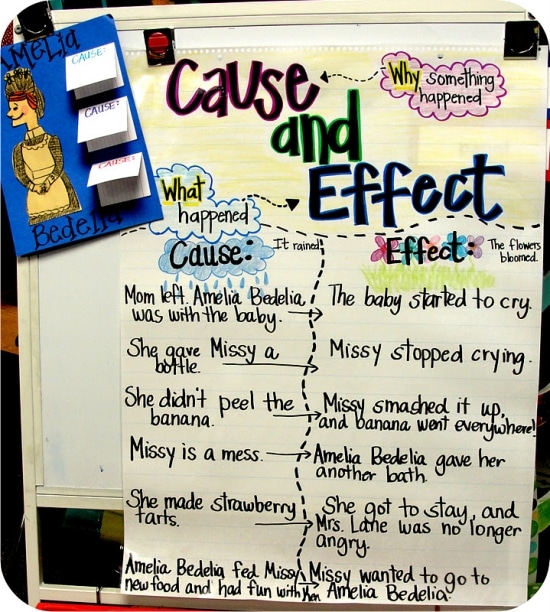 AMELIA
CAUSE:
CAUSE:
CAUSE:
Bedelia
Cause
and
Effect
Why something
happened
What
happened
Cause:
It rained
Effect:
The flowers
bloomed.
Mom left. Amelia Bedelia
was with the baby.
The baby started to cry.
She gave Missy a
bottle.
Missy stopped crying.
She didn't peel the
banana.
Missy smashed it up,
and banana went everywhere!
Missy is a mess.
Amelia Bedelia gave her
another bath.
She made strawberry
tarts.
She got to stay, and
Mrs. Lane was no longer
angry.
Amelia Bedelia fed Missy
new food and had fun with her.
Missy wanted to go to
Amelia Bedelia.